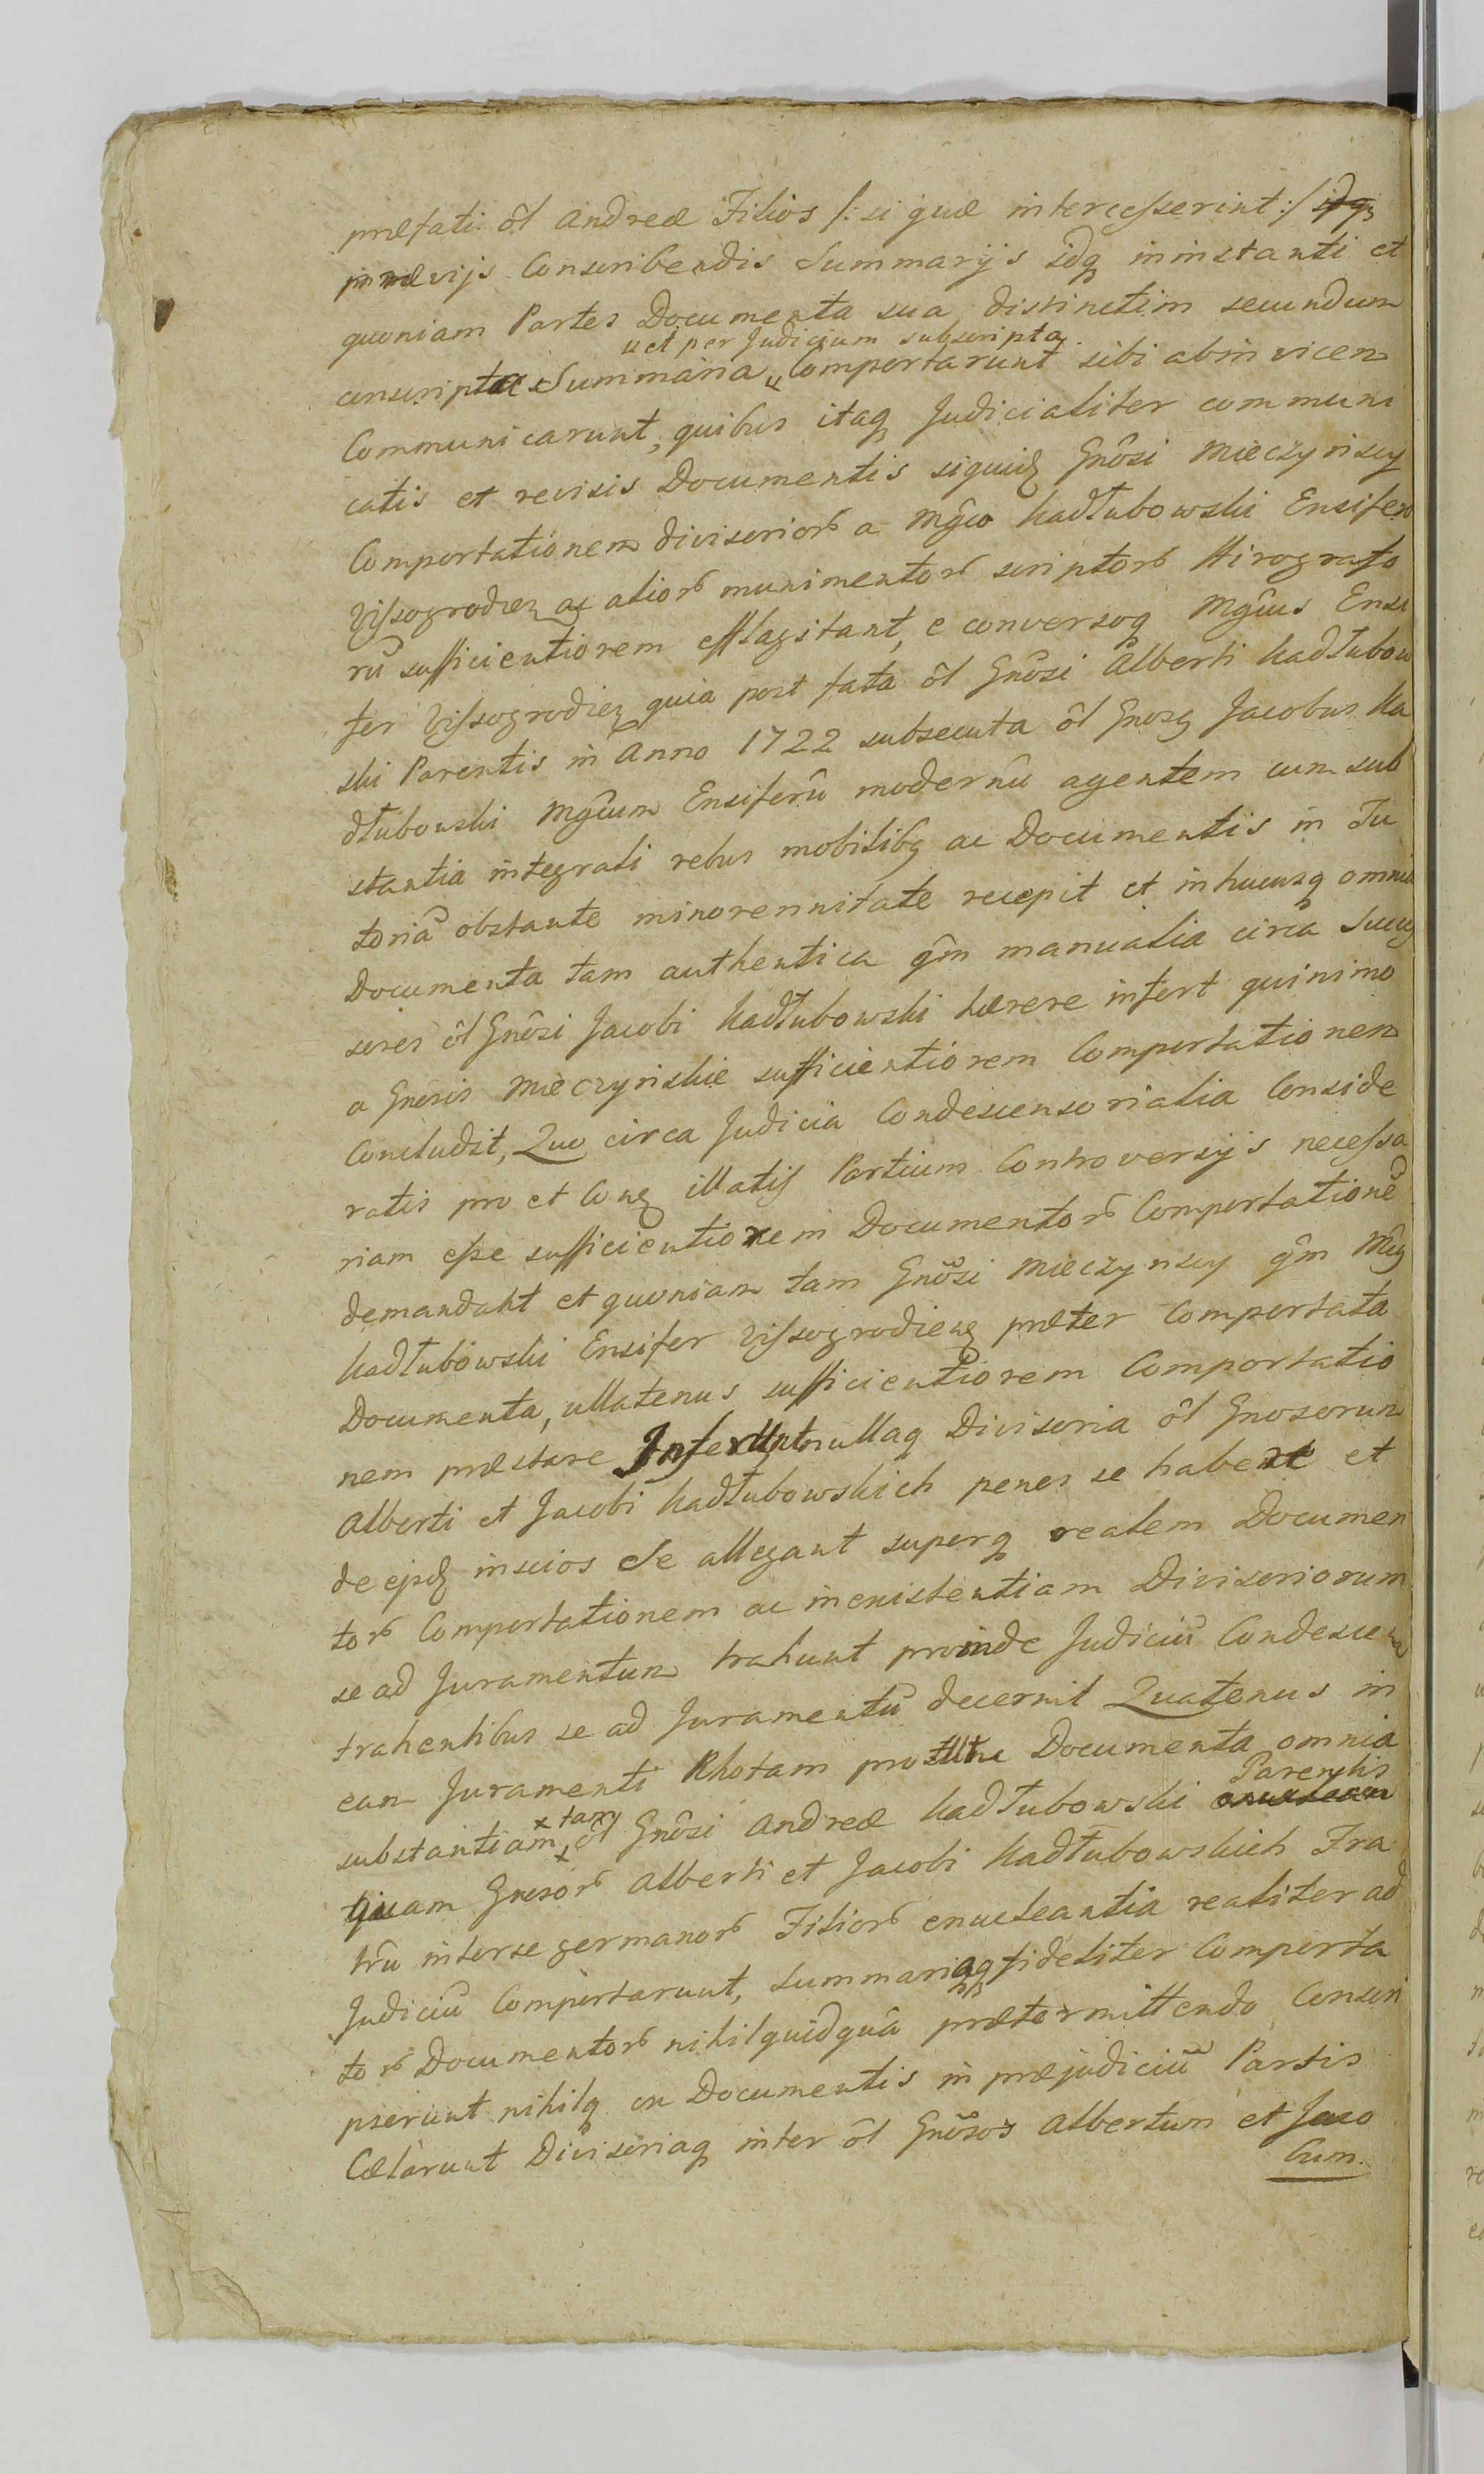 præfati ol Andreæ Filios /: si quæ intercesserint :/ idq3
prævijs Conscribendis Summarijs idq in instanti et
quoniam Partes Documenta sua distinctim secundum
conscripta Summaria " et per Judicium subscripta Comportarunt sibi abinvicem
Communicarunt, quibus itaq Judicialiter communi
catis et revisis Documentis siquid Gnôsi Mieczynscy
Comportationem divisorior a Mgco Kadłubowski Ensifero
Vissogrodien ac alior munimentor scriptor Hirografo
rũ sufficientiorem efflagitant, e conversoq Mgcus Ensi
fer Vissogrodien quia post fata ôl Gnôsi Alberti Kadłubow
ski Parentis in Anno 1722 subsecuta ôl Gnosq Jacobus Ka
dłubowski Mgcum Ensiferũ modernũ agentem cum sub
stantia integrali rebus mobilibq ac Documentis in Tu
toriã obstante minorennitate recepit et inhucusq omnia
Documenta tam authentica qm manualia circa Succes
sores ôl Gnôsi Jacobi Kadłubowski hærere infert quinimo
a Gnosis Mieczynskie sufficientiorem Comportationem
Concludit, Quo circa Judicia Condescensorialia Conside
ratis pro et Conq illatis Partium Controversijs necessa
riam esse sufficientiorem Documentor Comportationẽ
demandant et quoniam tam Gnôsi Mieczynscy qm Mgq
Kadłubowski Ensifer Vissogrodienq præter Comportata
Documenta, ullatenus sufficientiorem Comportatio
nem præstare Inferunt nullaq Divisoria ôl Gnosorum
Alberti et Jacobi Kadłubowskich penes se habere et
de ejsdq inscios se allegant superq realem Documen
tor Comportationem ac inexistentiam Divisoriorum
se ad Juramentum trahunt proinde Judiciũ Condescen
trahentibus se ad Juramentũ decernit Quatenus in
eam Juramenti Rhotam Documenta omnia
substantiam x tam ôl Gnôsi Andreæ Kadłubowski Parentis
quam Gnosor Alberti et Jacobi Kadłubowskich Fra
trũ inter se germanor Filior enucleantia realiter ad
Judiciũ Comportarunt, Summariaq fideliter Comporta
tor Documentor nihilquidquã prætermittendo Conscri
pserunt nihilq ex Documentis in præjudiciũ Partis
Cælarunt Divisoriaq inter ôl Gnôsos Albertum et Jaco
bum.